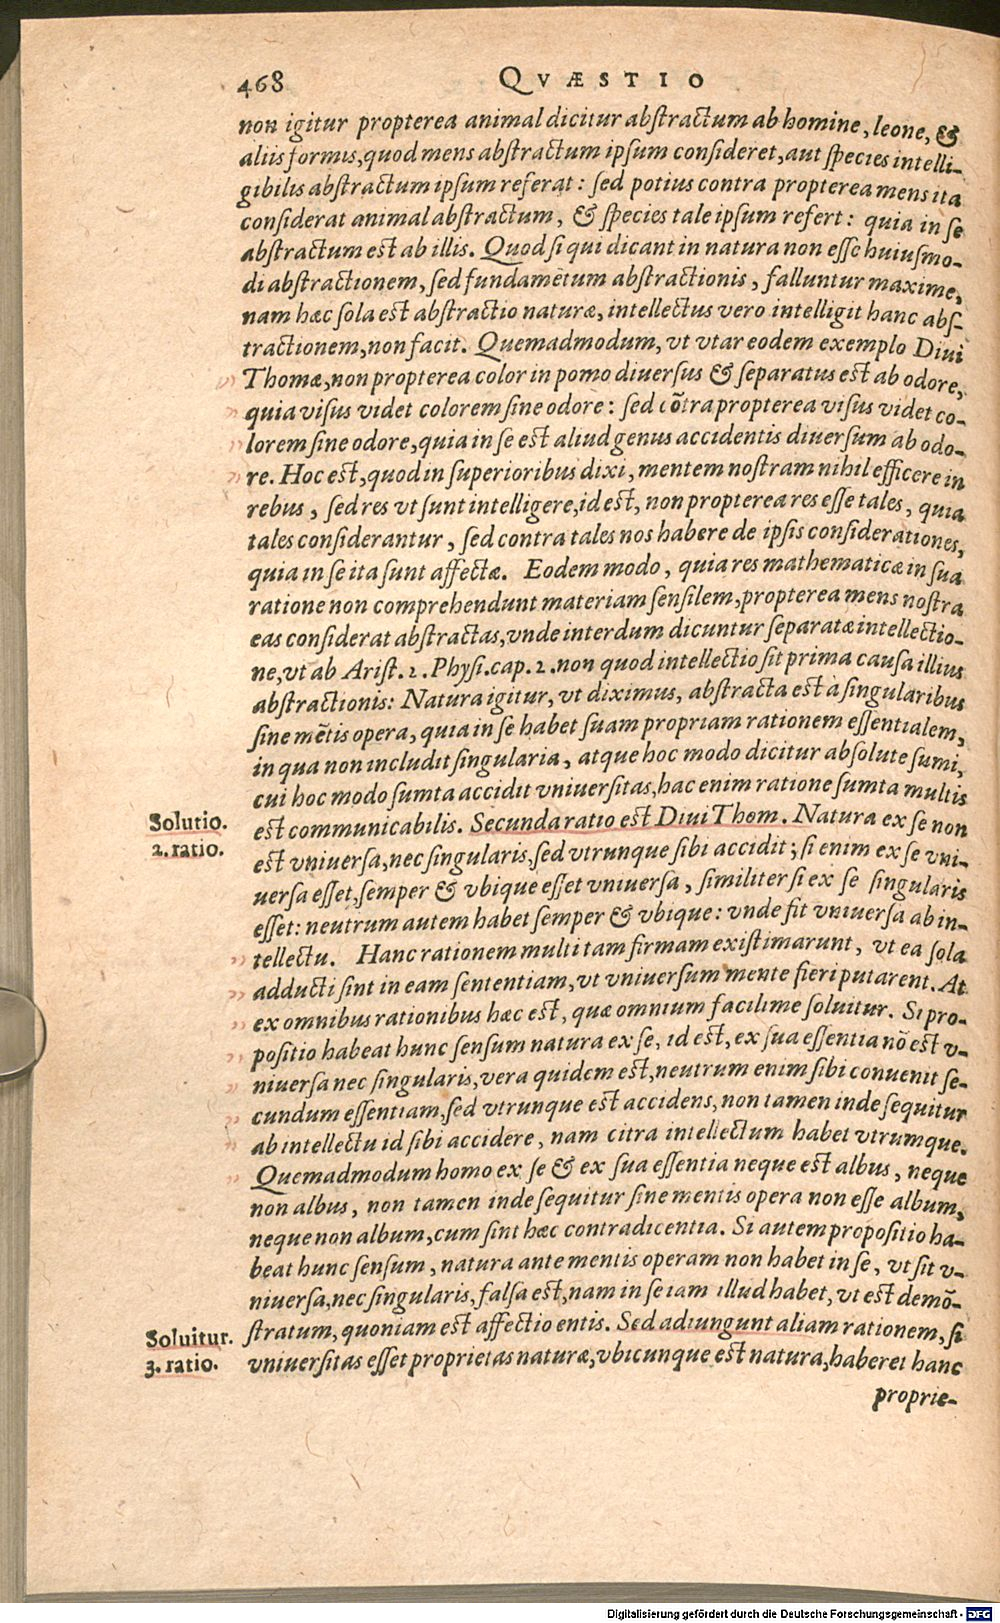 468 QVÆSTIO
non igitur propterea animal dicitur abstractum ab homine, leone, &
aliis formis, quod mens abstractum ipsum consideret, aut species intelli-
gibilis abstractum ipsum referat: sed potius contra propterea mens ita
considerat animal abstractum, & species tale ipsum refert: quia in se
abstractum est ab illis. Quod si qui dicant in natura non esse huiusmo-
di abstractionem, sed fundamētum abstractionis, falluntur maxime,
nam hæc sola est abstractio naturæ, intellectus vero intelligit hanc abs-
tractionem, non facit. Quemadmodum, vt vtar eodem exemplo Diui
Thomæ, non propterea color in pomo diuersus & separatus est ab odore,
quia visus videt colorem sine odore: sed cōtra propterea visus videt co-
lorem sine odore, quia in se est aliud genus accidentis diuersum ab odo-
re. Hoc est, quod in superioribus dixi, mentem nostram nihil efficere in
rebus, sed res vt sunt intelligere, id est, non propterea res esse tales, quia
tales considerantur, sed contra tales nos habere de ipsis considerationes,
quia in se ita sunt affectæ. Eodem modo, quia res mathematicæ in sua
ratione non comprehendunt materiam sensilem, propterea mens nostra
eas considerat abstractas, vnde interdum dicuntur separatæ intellectio-
ne, vt ab Arist. 2. Physi. cap. 2. non quod intellectio sit prima causa illius
abstractionis: Natura igitur, vt diximus, abstracta est à singularibus
sine mētis opera, quia in se habet suam propriam rationem essentialem,
in qua non includit singularia, atque hoc modo dicitur absolute sumi,
cui hoc modo sumta accidit vniuersitas, hac enim ratione sumta multis
Solutio. est communicabilis. Secunda ratio est Diui Thom. Natura ex se non
2. ratio. est vniuersa, nec singularis, sed vtrunque sibi accidit; si enim ex se vni-
uersa esset, semper & vbique esset vniuersa, similiter si ex se singularis
esset: neutrum autem habet semper & vbique: vnde fit vniuersa ab in-
tellectu. Hanc rationem multi tam firmam existimarunt, vt ea sola
adducti sint in eam sententiam, vt vniuersum mente fieri putarent. At
ex omnibus rationibus hæc est, quæ omnium facilime soluitur. Si pro-
positio habeat hunc sensum natura ex se, id est, ex sua essentia nō est v-
niuersa nec singularis, vera quidem est, neutrum enim sibi conuenit se-
cundum essentiam, sed vtrunque est accidens, non tamen inde sequitur
ab intellectu id sibi accidere, nam citra intellectum habet vtrumque.
Quemadmodum homo ex se & ex sua essentia neque est albus, neque
non albus, non tamen inde sequitur sine mentis opera non esse album,
neque non album, cum sint hæc contradicentia. Si autem propositio ha-
beat hunc sensum, natura ante mentis operam non habet in se, vt sit v-
niuersa, nec singularis, falsa est, nam in se iam illud habet, vt est demō-
Soluitur. stratum, quoniam est affectio entis. Sed adiungunt aliam rationem, si
3. ratio. vniuersitas esset proprietas naturæ, vbicunque est natura, haberet hanc
proprie-
Digitalisierung gefördert durch die Deutsche Forschungsgemeinschaft - DFG